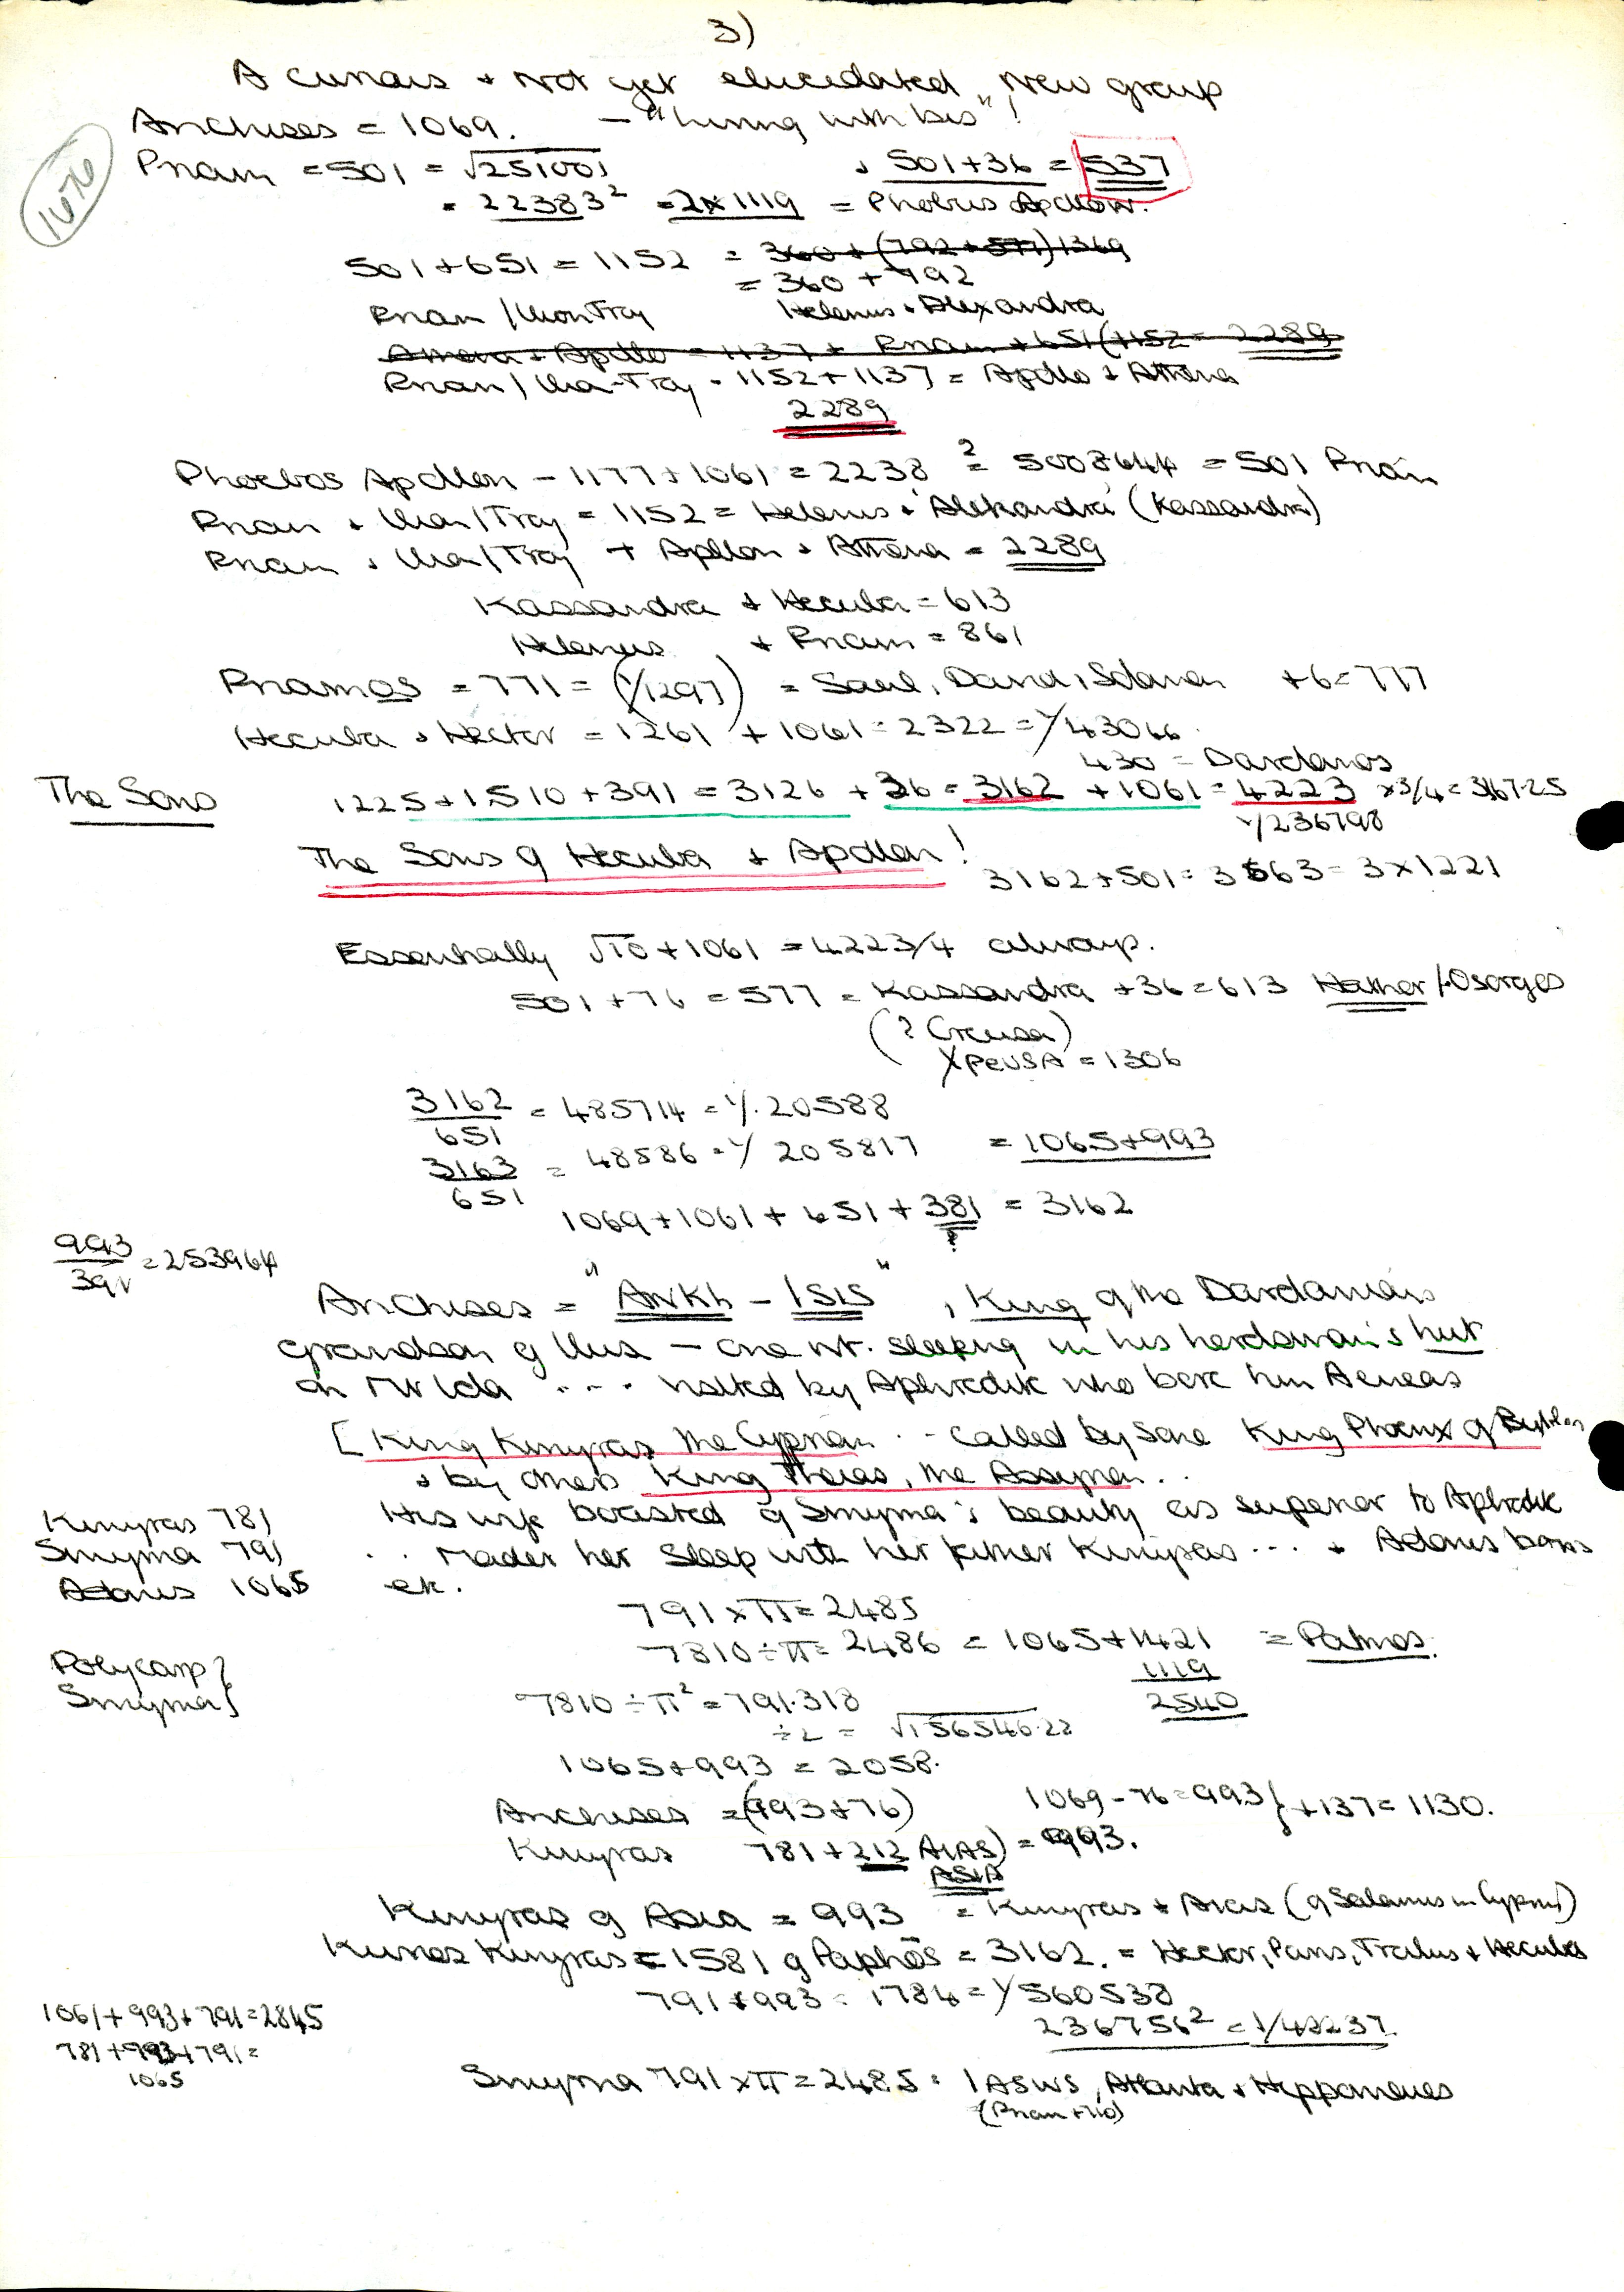 3)
A curious + not yet elucidated, New group
Anchises = 1069. - "living with Isis"!
1076
Priam = 501 = √251001 + 501+36 = 537
= 22383² = 2x1119 = Phoebus Apollon.
501+651 = 1152 = 360 + (792+577) 1369
= 360 + 792
Priam / Ilion Troy Helenus + Alexandra
Athena + Apollo = 1137 + Priam + 651 (1152 = 2289
Priam / Ilion-Troy = 1152 + 1137 = Apollo + Athena
2289
Phoebos Apollon - 1177+1061 = 2238 ² = 5008644 = 501 Priam
Priam + Ilion/Troy = 1152 = Helenus + Alexandra (Kassandra)
Priam + Ilion/Troy + Apollon + Athena = 2289
Kassandra + Hecuba = 613
Helenus + Priam = 861
Priamos = 771 = (1/1297) = Saul, David, Solomon +6=777
Hecuba + Hector = 1261 + 1061 = 2322 = 1/43066
430 = Dardanos
The Sons 1225+1510+391 = 3126 + 36 = 3162 + 1061 = 4223 x3/4 = 3167.25
1/236798
The Sons of Hecuba + Apollon! 3162+501 = 3663 = 3x1221
Essentially √10 + 1061 = 4223/4 always.
501 + 76 = 577 = Kassandra +36=613 Hathor / Oserges
(? Creusa)
XpeUSA = 1306
3162/651 = 485714 = 1/.20588
3163/651 = 48586 = 1/205817 = 1065+993
1069+1061+651+381 = 3162
?
993/391 = 253964
Anchises = "Ankh - Isis", King of the Dardanians
Grandson of Ilus - one nt. sleeping in his herdsman's hut
on Mt Ida .... visited by Aphrodite who bore him Aeneas
[King Kinyras the Cyprian .. called by some King Phoenix of Byblos
+ by others King Theias, the Assyrian..
Kinyras 781 His wife boasted of Smyrna's beauty as superior to Aphrodite
Smyrna 791 .. Made her sleep with her father Kinyras ... + Adonis born
Adonis 1065 etc.
791 x π = 2485
7810 ÷ π = 2486 = 1065+1421 = Patmos.
1119
2540
Polycarp }
Smyrna }
7810 ÷ π² = 791.318
÷2 = √156546.22
1065+993 = 2058.
Anchises = (993+76) 1069-76=993} +137 = 1130.
Kinyras 781+212 AIAS) = 993.
ASIA
Kinyras of Asia = 993 = Kinyras + Aias (of Salamis in Cyprus)
Kinyras = 1581 of Paphos = 3162. = Hector, Paris, Troilus + Hecuba
791+993 = 1784 = 1/560538
236756² = 1/
1061+993+791=2845
781+993+791=
1065
Smyrna 791 x π = 2485 = IASWS, Atlanta + Hippomenes
(Priam +710)